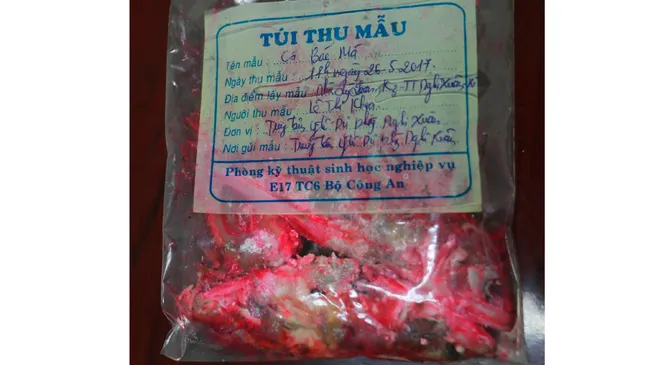 TÚI THU MẪU
Tên mẫu : Cá Bạc Má
Ngày thu mẫu : 11h ngày 26.5.2017.
Địa điểm lấy mẫu TT Nghi Xuân
Người thu mẫu : Lê Thị
Đơn vị : Trung tâm Dự phòng Nghi Xuân
Nơi gửi mẫu : Trung tâm Dự phòng Nghi Xuân
Phòng kỹ thuật sinh học nghiệp vụ
E17 TC6 Bộ Công An